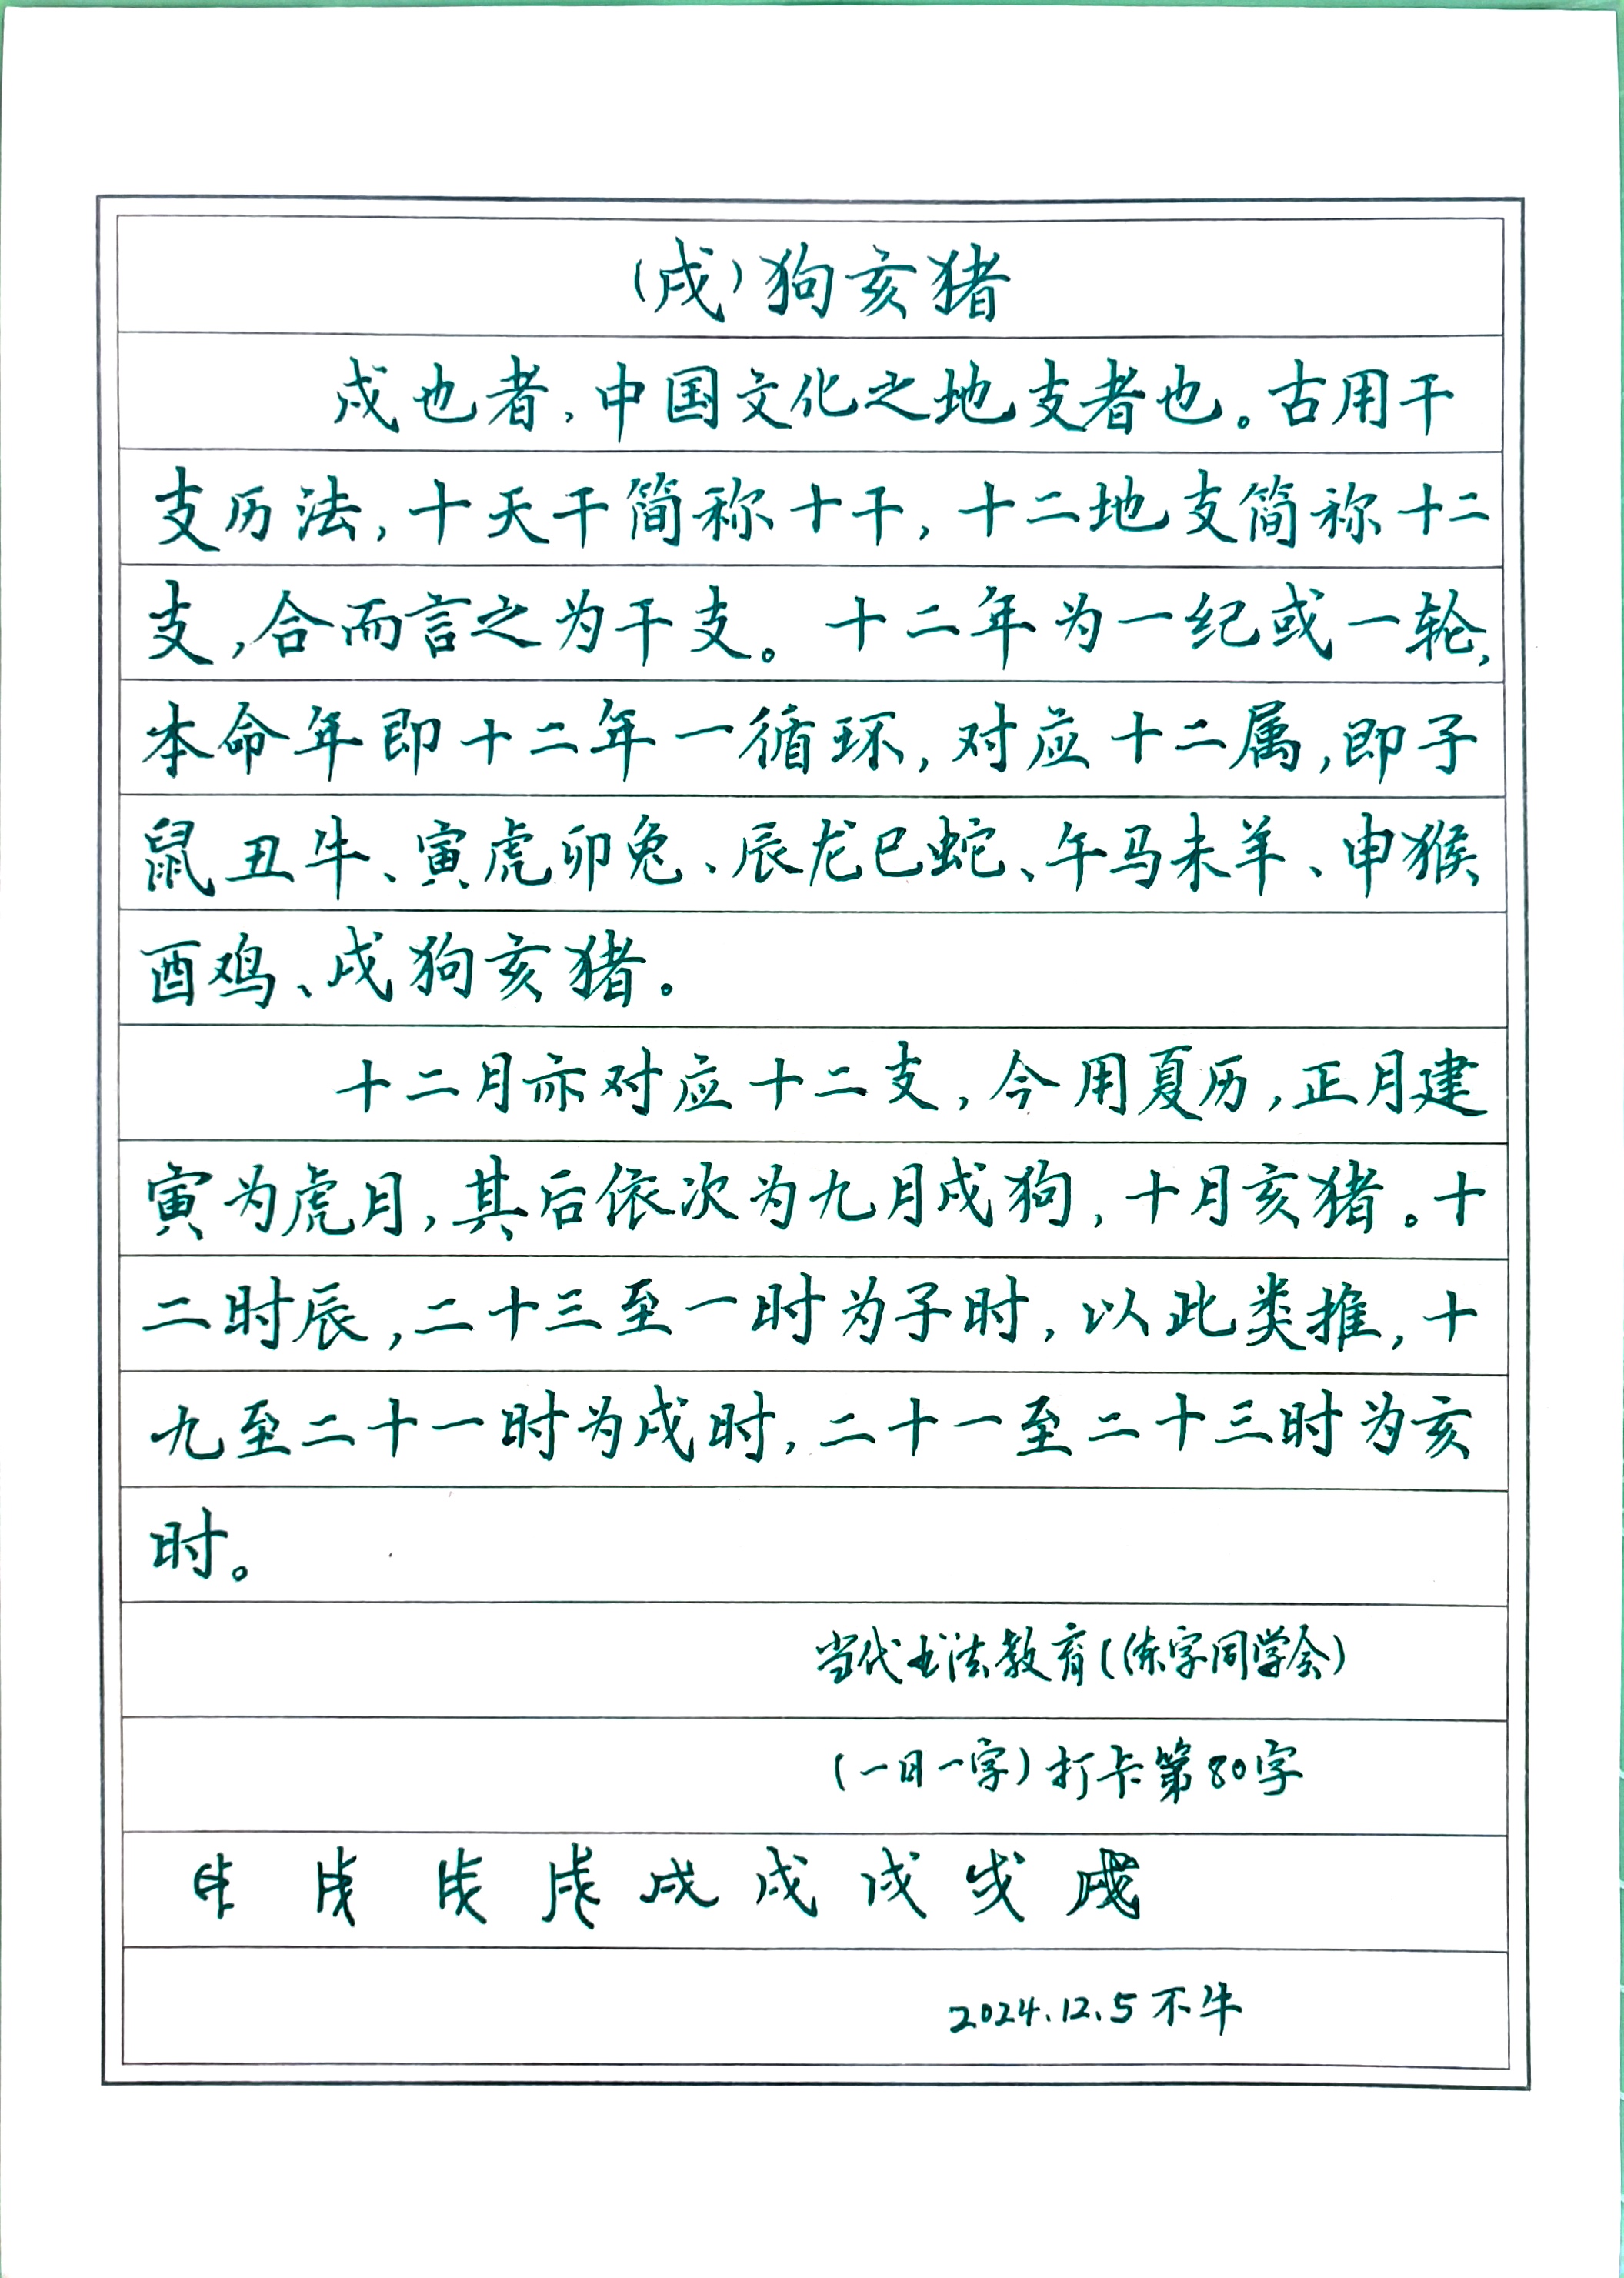 (戌)狗亥猪
戌也者，中国文化之地支者也。古用干
支历法，十天干简称十干，十二地支简称十二
支，合而言之为干支。十二年为一纪或一轮，
本命年即十二年一循环，对应十二属，即子
鼠丑牛、寅虎卯兔、辰龙巳蛇、午马未羊、申猴
酉鸡、戌狗亥猪。
十二月亦对应十二支，今用夏历，正月建
寅为虎月，其后依次为九月戌狗，十月亥猪。十
二时辰，二十三至一时为子时，以此类推，十
九至二十一时为戌时，二十一至二十三时为亥
时。
当代书法教育(练字同学会)
(一日一字)打卡第80字
戌 戌 戌 戌 戌 戌 戌
2024.12.5不牛